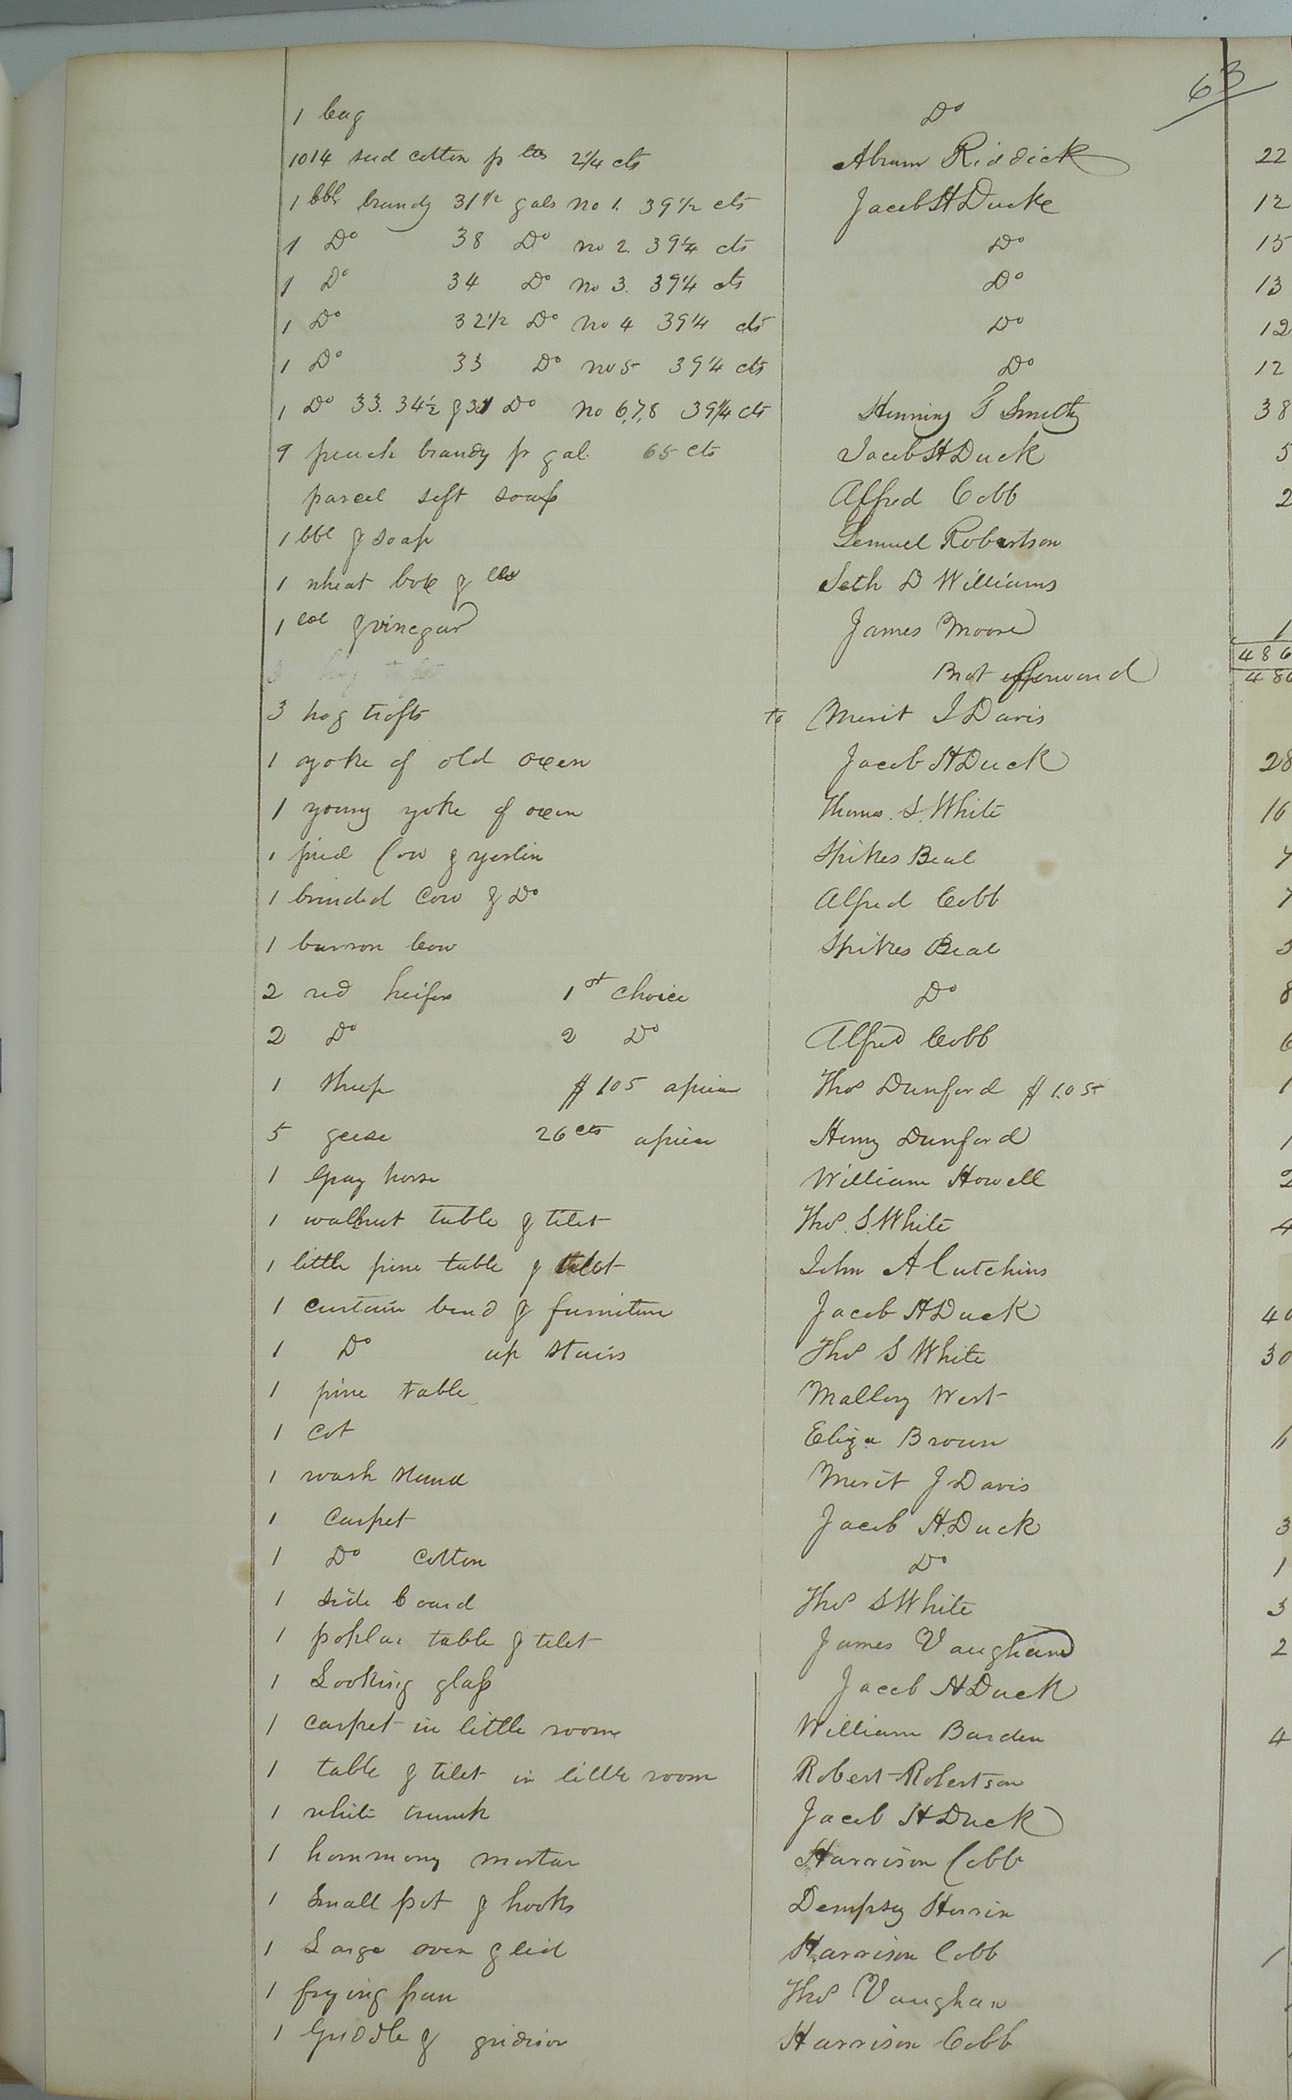 63
1 bag Do
1014 seed cotton p lbs 2 1/4 cts Abram Riddick 22
1 bbl brandy 31 1/2 gals no 1. 39 1/2 cts Jacob H Duck 12
1 Do 38 Do no 2. 39 1/4 cts Do 15
1 Do 34 Do no 3. 39 1/4 cts Do 13
1 Do 32 1/2 Do no 4 39 1/4 cts Do 12
1 Do 33 Do no 5 39 1/4 cts Do 12
1 Do 33. 34 1/2 & 31 Do no 6,7,8 39 1/4 cts Henning T Smith 38
9 peach brandy pr gal. 65 cts Jacob H Duck 5
parcel soft soap Alfred Cobb 2
1 bbl & soap Lemuel Robertson
1 wheat box & Seth D Williams
1 & vinegar James Moore 1
486
Brot forward 486
3 hog trofts to Merit J Davis
1 yoke of old oxen Jacob H Duck 28
1 young yoke of oxen Thomas S. White 16
1 pied Cow & yerlin Spikes Beal 7
1 brinded Cow & Do Alfred Cobb 7
1 barron Cow Spikes Beal 5
2 red heifers 1st choice Do 8
2 Do 2 Do Alfred Cobb 6
1 sheep $1.05 apiece Thos Dunford $1.05 1
5 geese 26 cts apiece Henry Dunford 1
1 Gray horse William Howell 2
1 walnut table & tilet Thos. S. White 4
1 little pine table & tilet John A Cutchins
1 curtain bead & furniture Jacob H Duck 40
1 Do up stairs Thos S White 30
1 pine table Mallory West
1 cot Eliza Brown
1 wash stand Merit J Davis
1 carpet Jacob H. Duck 3
1 Do cotton Do 1
1 side board Thos S White 3
1 poplar table & tilet James Vaughan 2
1 Looking glass Jacob H Duck
1 carpet in little room William Barden 4
1 table & tilet in little room Robert Robertson
1 white trunk Jacob H Duck
1 hommony mortar Harrison Cobb
1 Small pot & hooks Dempsey Herrin
1 Large oven & lid Harrison Cobb 1
1 frying pan Thos Vaughan
1 Griddle & gridiron Harrison Cobb